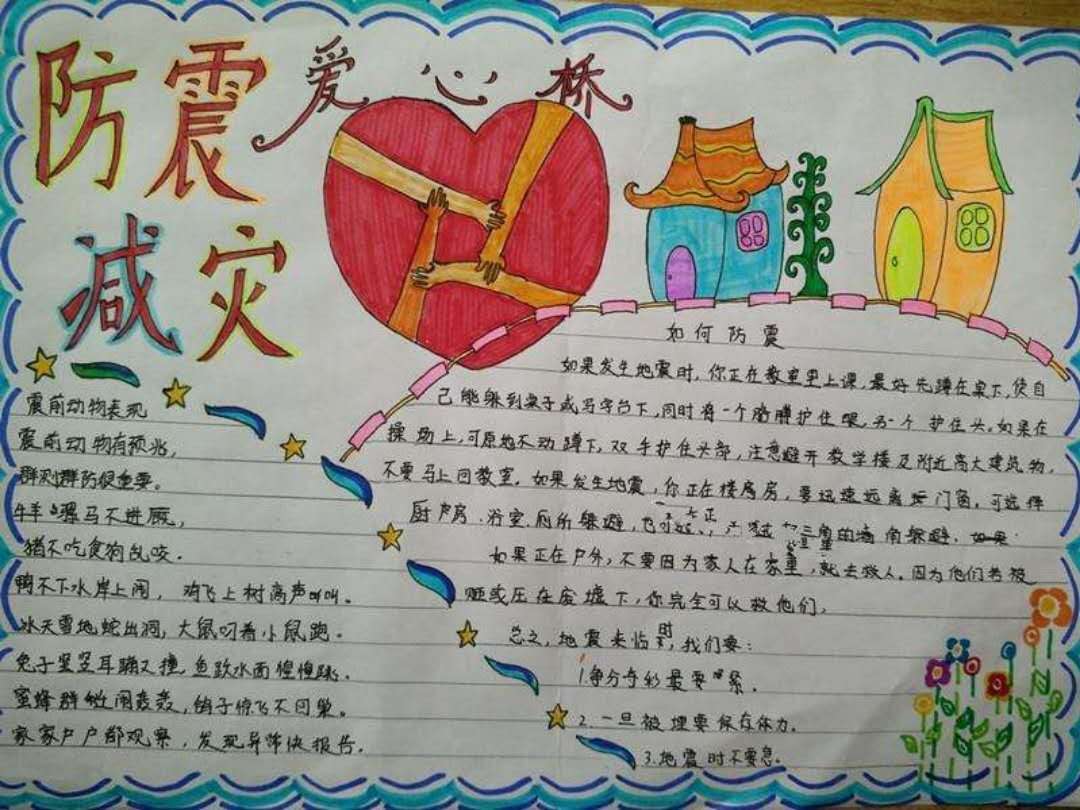 防震
减灾
爱心桥
震前动物表现
震前动物有预兆，
群测群防很重要。
牛羊骡马不进厩，
猪不吃食狗乱咬．
鸭不下水岸上闹，鸡飞上树高声叫．
冰天雪地蛇出洞，大鼠叼着小鼠跑．
兔子竖竖耳蹦又撞，鱼跃水面惶惶跳．
蜜蜂群　闹轰轰，鸽子惊飞不回巢。
家家户户都观察，发现异　快报告．
如何防震
如果发生地震时，你正在教室里上课，最好先蹲在桌下，使自
己能躲到桌子或写字台下，同时将一个胳膊护住眼，另一个护住头。如果在
操场上，可原地不动蹲下，双手护住头部，注意避开教学楼及附近高大建筑物，
不要马上回教室．如果发生地震，你正在楼房房，要迅速远离　门窗，可选择
厨户房．浴室．厕所躲避，也可　三角的墙角躲避．如果
如果正在户外，不要因为家人在家里，就去救人。因为他们若被
砸或压在废墟下，你完全可以救他们，
总之，地震来临时，我们要：
1．争分夺秒最要　紧．
2．一旦被埋要保存体力．
3．地震时不要急．